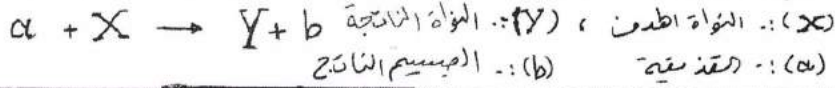 a + X → Y + b (X): النواة الهدف ، (Y): النواة الناتجة
(a): القذيفة (b): الجسيم الناتج